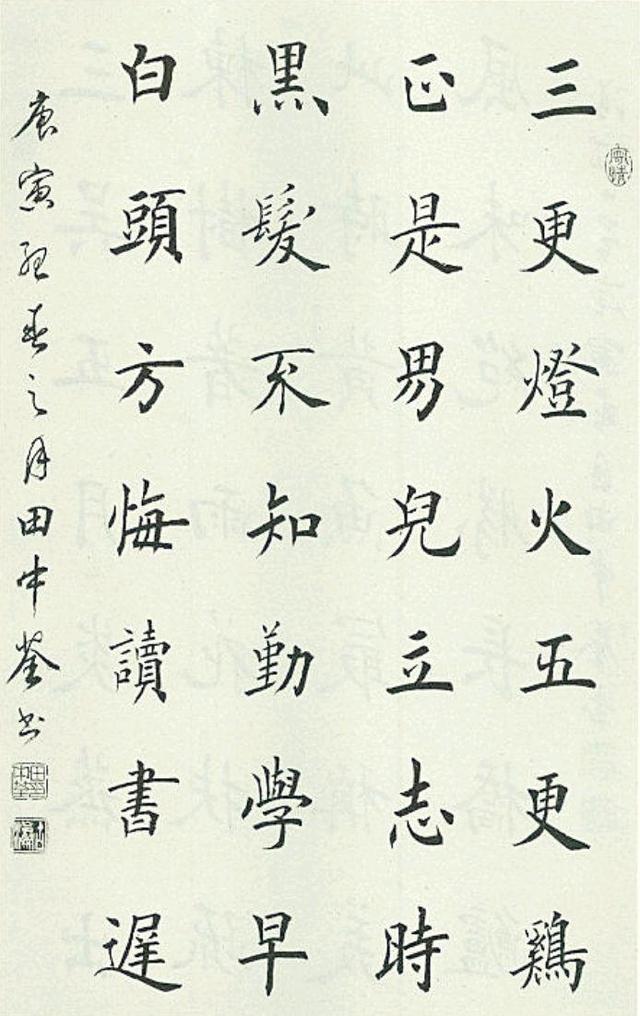 三更燈火五更鷄
正是男兒立志時
黒髮不知勤學早
白頭方悔讀書遲
庚寅孟春之月田中鎣書